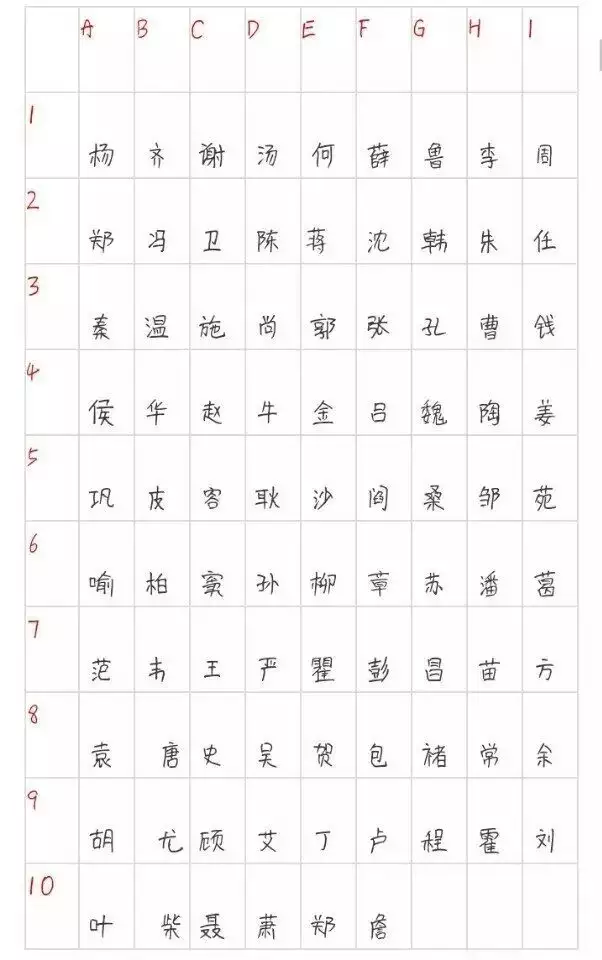 A B C D E F G H I
1 杨 齐 谢 汤 何 薛 鲁 李 周
2 郑 冯 卫 陈 蒋 沈 韩 朱 任
3 秦 温 施 尚 郭 张 孔 曹 钱
4 侯 华 赵 牛 金 吕 魏 陶 姜
5 巩 皮 容 耿 沙 阎 桑 邹 苑
6 喻 柏 窦 孙 柳 章 苏 潘 葛
7 范 韦 王 严 瞿 彭 昌 苗 方
8 袁 唐 史 吴 贺 包 褚 常 余
9 胡 尤 顾 艾 丁 卢 程 霍 刘
10 叶 柴 聂 萧 郑 詹